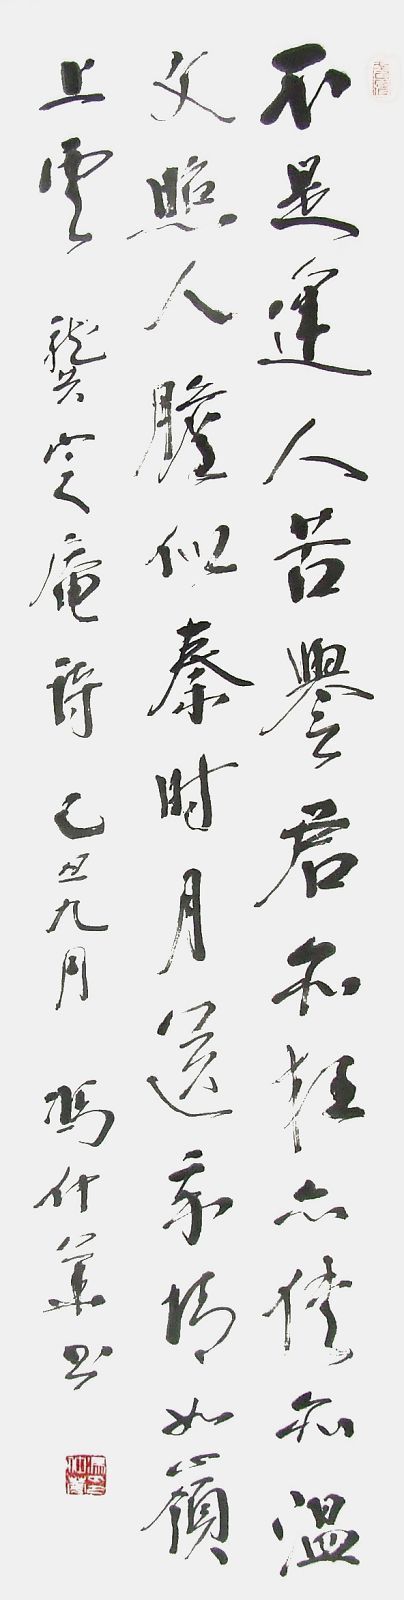 不是逢人苦譽君亦狂亦俠亦温
文照人膽似秦时月送我情如嶺
上雲 龔定庵詩 己丑九月 馮仲書